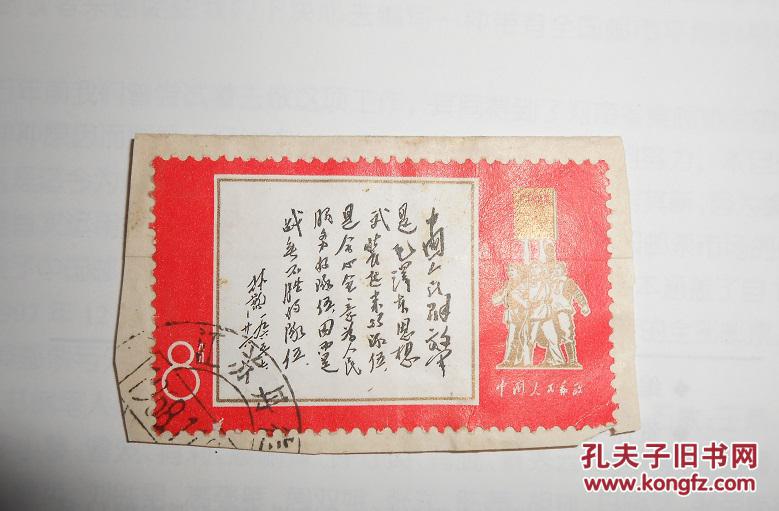 中国人民解放军
是毛泽东思想
武装起来的队伍,
是全心全意为人民
服务的队伍,因而是
战无不胜的队伍.
林彪
8
八分
中国人民邮政
江苏丹
孔夫子旧书网
www.kongfz.com